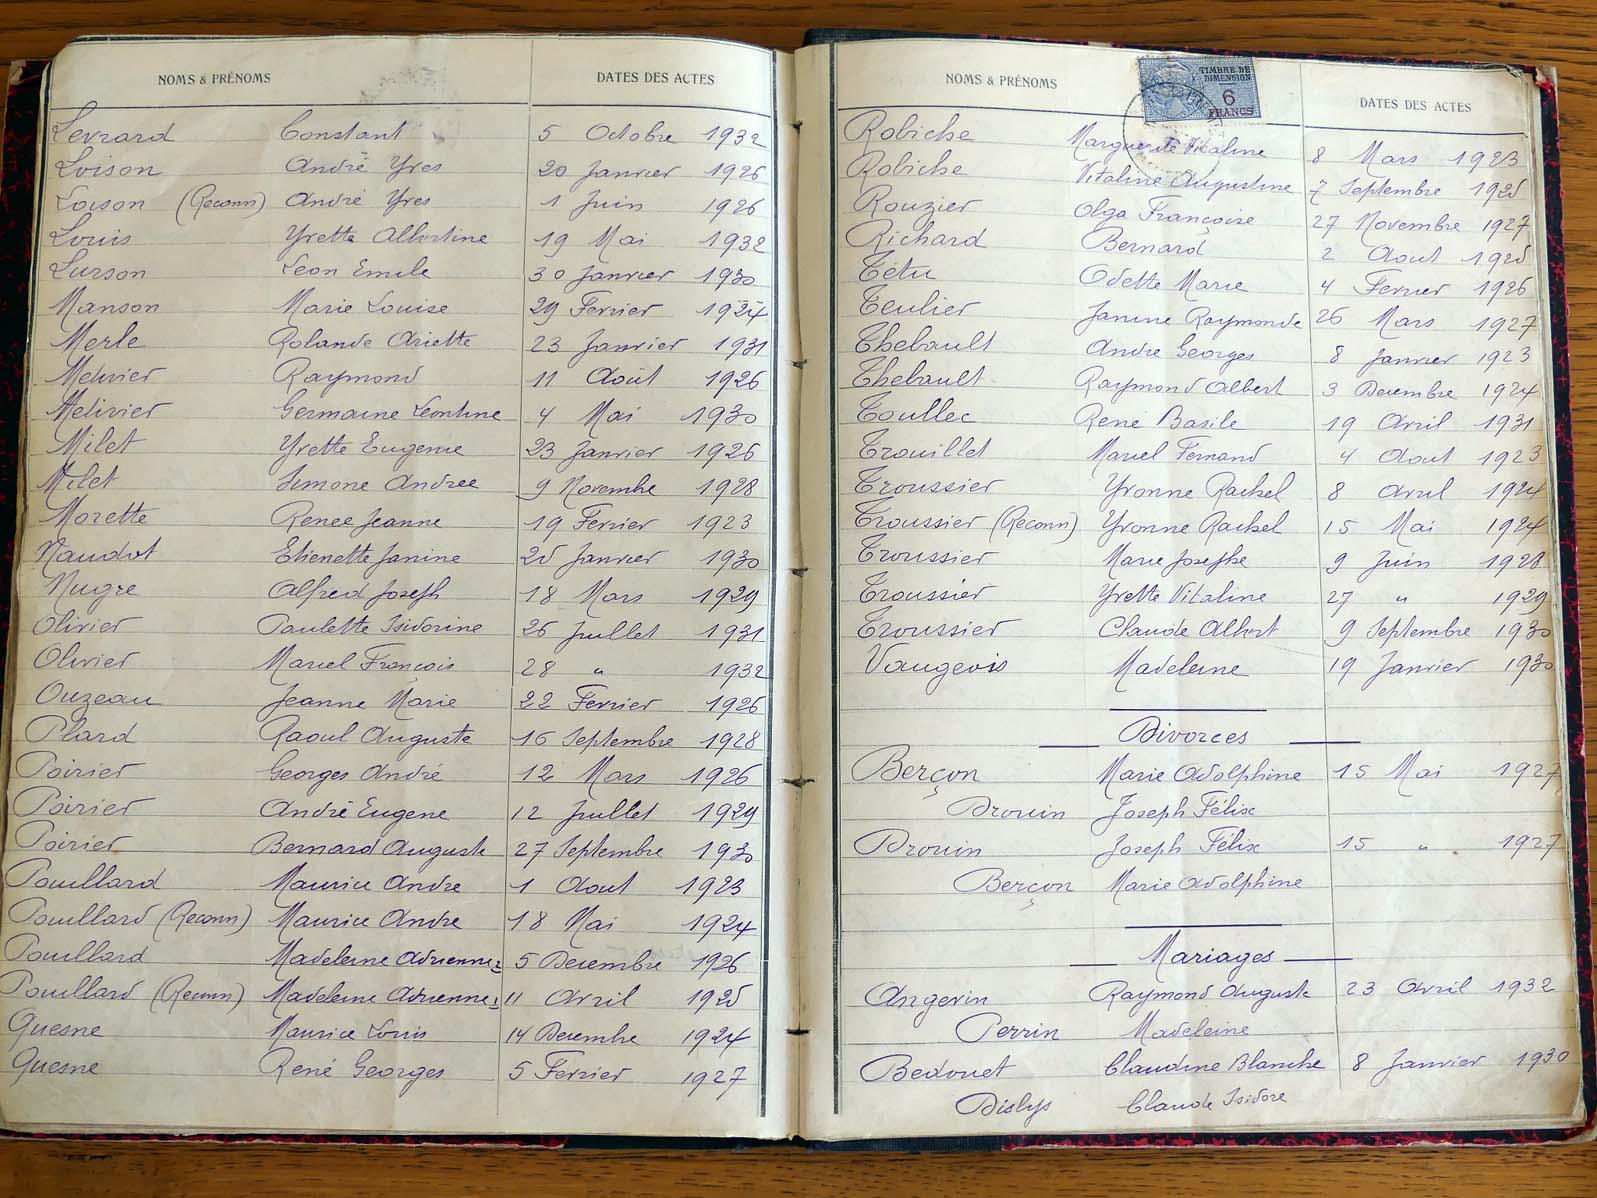 NOMS & PRÉNOMS DATES DES ACTES
Levrard Constant 5 Octobre 1932
Loison André Yves 20 Janvier 1926
Loison (Reconn) André Yves 1 Juin 1926
Louis Yvette Albertine 19 Mai 1932
Lurson Leon Emile 30 Janvier 1930
Manson Marie Louise 29 Fevrier 1924
Merle Rolande Ariette 23 Janvier 1931
Metivier Raymond 11 Août 1926
Metivier Germaine Leontine 4 Mai 1930
Milet Yvette Eugenie 23 Janvier 1926
Milet Simone Andree 9 Novembre 1928
Morette Renee Jeanne 19 Fevrier 1923
Naudot Etienette Janine 25 Janvier 1930
Nugre Alfred Joseph 18 Mars 1929
Olivier Paulette Isidorine 26 Juillet 1931
Olivier Marcel François 28 " 1932
Ouzeau Jeanne Marie 22 Fevrier 1926
Plard Raoul Auguste 16 Septembre 1928
Poirier Georges André 12 Mars 1926
Poirier André Eugene 12 Juillet 1929
Poirier Bernard Auguste 27 Septembre 1930
Pouillard Maurice Andre 1 Aout 1923
Pouillard (Reconn) Maurice Andre 18 Mai 1924
Pouillard Madeleine Adrienne 5 Decembre 1926
Pouillard (Reconn) Madeleine Adrienne 11 Avril 1925
Quesne Maurice Louis 14 Decembre 1924
Quesne René Georges 5 Fevrier 1927
NOMS & PRÉNOMS DATES DES ACTES
TIMBRE DE
DIMENSION
6
FRANCS
Robiche Marguerite Vitaline 8 Mars 1923
Robiche Vitaline Augustine 7 Septembre 1925
Rouzier Olga Françoise 27 Novembre 1927
Richard Bernard 2 Aout 1925
Tétu Odette Marie 4 Fevrier 1926
Teulier Janine Raymonde 26 Mars 1927
Thebault Andre Georges 8 Janvier 1923
Thebault Raymond Albert 3 Decembre 1924
Toullec René Basile 19 Avril 1931
Trouillet Marcel Fernand 4 Aout 1923
Troussier Yvonne Rachel 8 Avril 1924
Troussier (Reconn) Yvonne Rachel 15 Mai 1924
Troussier Marie Josephe 9 Juin 1928
Troussier Yvette Vitaline 27 " 1929
Troussier Claude Albert 9 Septembre 1930
Vaugeois Madeleine 19 Janvier 1930
Divorces
Berçon Marie Adolphine 15 Mai 1927
Drouin Joseph Félix
Drouin Joseph Félix 15 " 1927
Berçon Marie Adolphine
Mariages
Angevin Raymond Auguste 23 Avril 1932
Perrin Madeleine
Bedouet Claudine Blanche 8 Janvier 1930
Dislys Claude Isidore